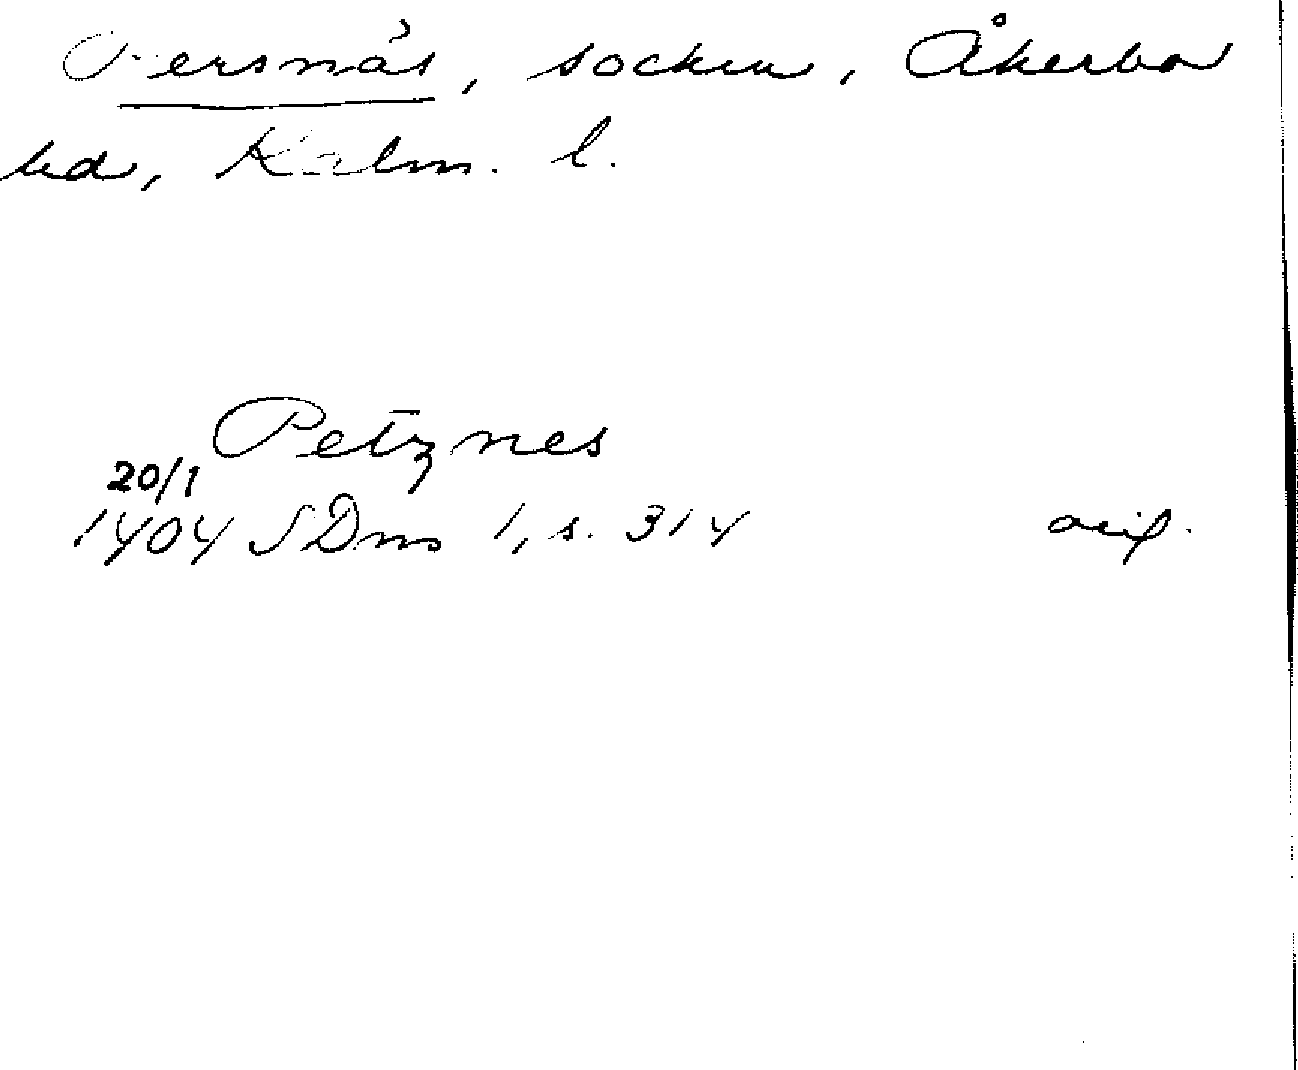 Persnäs, socken, Åkerbo
hd, Kalm. l.
Petznes
20/1
1404 SDns 1, s. 314 orig.